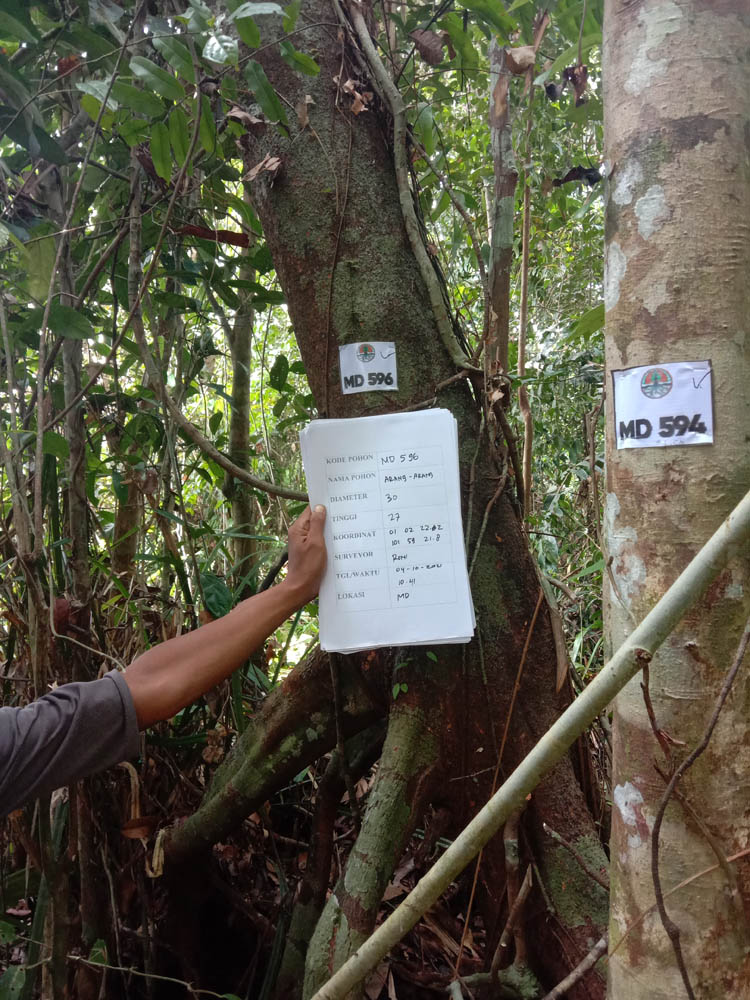 MD 596
MD 594
KODE POHON MD 596
NAMA POHON ARANG-ARANG
DIAMETER 30
TINGGI 27
KOORDINAT 01 02 22.02
101 59 21.8
SURVEYOR RONI
TGL/WAKTU 04-10-2021
10.41
LOKASI MD